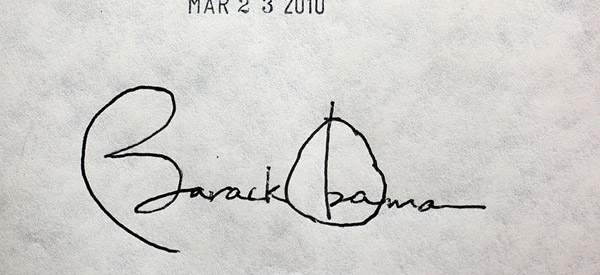 MAR 23 2010
Barack Obama